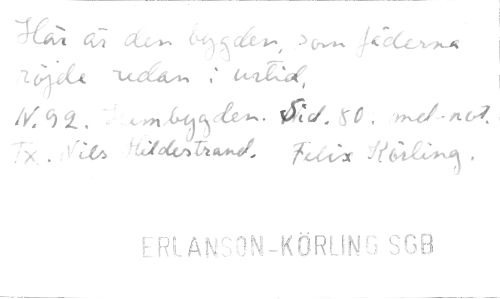 Här är den bygden, som fäderna
röjde redan i urtid,
N. 92. Hembygden. Sid. 80. med not.
Tx. Nils Hildestrand. Felix Körling.
ERLANSON-KÖRLING SGB